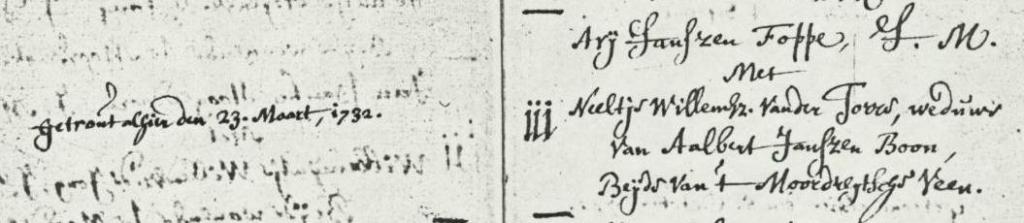 getrout alhier den 23. Maart, 1732.
Arij Janszen Foppe, J. M.
Met
iii Neeltje Willemsz. vander Torre, weduwe
van Aalbert Janszen Boon,
Beyde van 't Moordregtsche Veen.